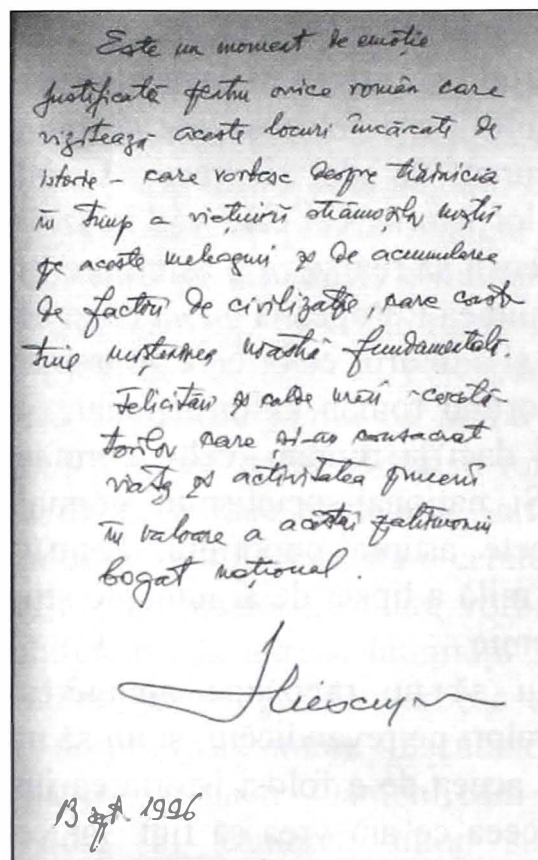 Este un moment de emoție
justificată pentru orice român care
vizitează aceste locuri încărcate de
istorie – care vorbesc despre trăinicia
în timp a viețuirii strămoșilor noștri
pe aceste meleaguri și de acumularea
de factori de civilizație, care consti-
tuie moștenirea noastră fundamentală.
Felicitări și calde urări cercetă-
torilor care și-au consacrat
viața și activitatea punerii
în valoare a acestui patrimoniu
bogat național.
Iliescu
13 1996